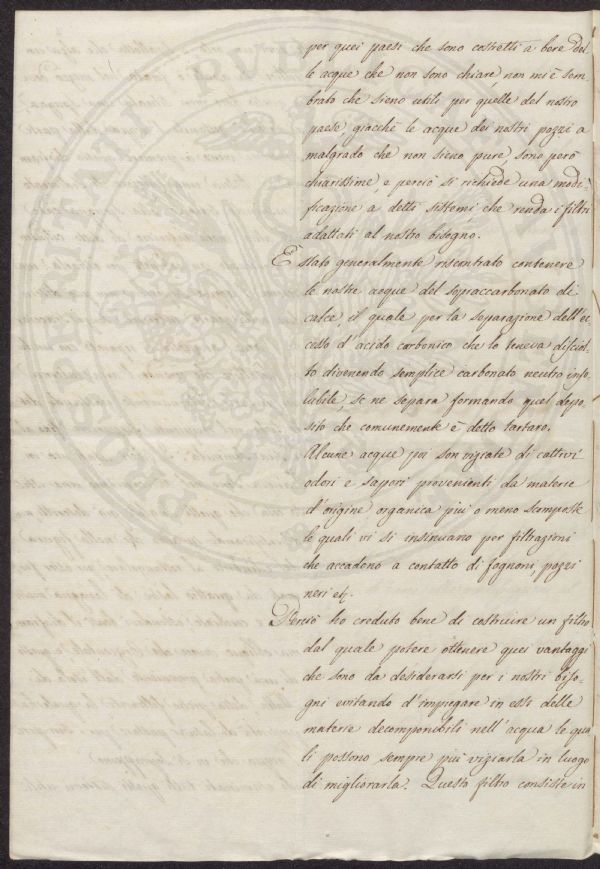 per quei paesi che sono costretti a bere del
le acque che non sono chiare, non mi è sem
brato che sieno utili per quelle del nostro
paese giacchè le acque dei nostri pozzi a
malgrado che non sieno pure sono però
chiarissime e perciò si richiede una modi
ficazione a detti sistemi che renda i filtri
adattati al nostro bisogno.
È stato generalmente riscontrato contenere
le nostre acque del sopraccarbonato di
calce, il quale per la separazione dell'ec
cesso d'acido carbonico che lo teneva disciol
to divenendo semplice carbonato neutro inso
lubile, se ne separa formando quel depo
sito che comunemente è detto tartaro.
Alcune acque poi son viziate di cattivi
odori e sapori provenienti da materie
d'origine organica più o meno scomposte
le quali vi si insinuano per filtrazioni
che accadono a contatto di fognoni, pozzi
neri etc.
Perciò ho creduto bene di costruire un filtro
dal quale potere ottenere quei vantaggi
che sono da desiderarsi per i nostri biso
gni evitando d'impegare in essi delle
materie decomponibili nell'acqua le qua
li possono sempre più viziarla in luogo
di migliorarla. Questo filtro consiste in